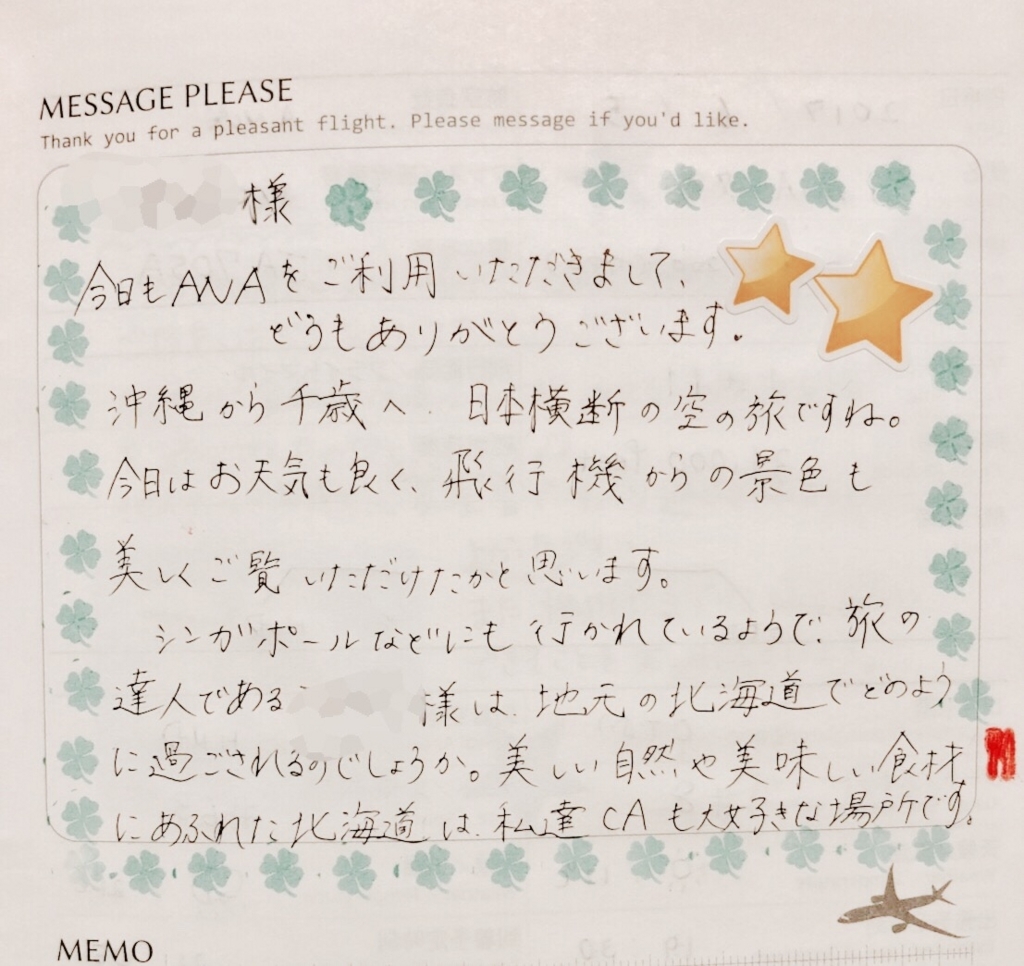 MESSAGE PLEASE
Thank you for a pleasant flight. Please message if you'd like.
様
今日もANAをご利用いただきまして、
どうもありがとうございます。
沖縄から千歳へ 日本横断の空の旅ですね。
今日はお天気も良く、飛行機からの景色も
美しくご覧いただけたかと思います。
シンガポールなどにも行かれているようで、旅の
達人である 様は、地元の北海道でどのよう
に過ごされるのでしょうか。美しい自然や美味しい食材
にあふれた北海道は、私達CAも大好きな場所です。
MEMO